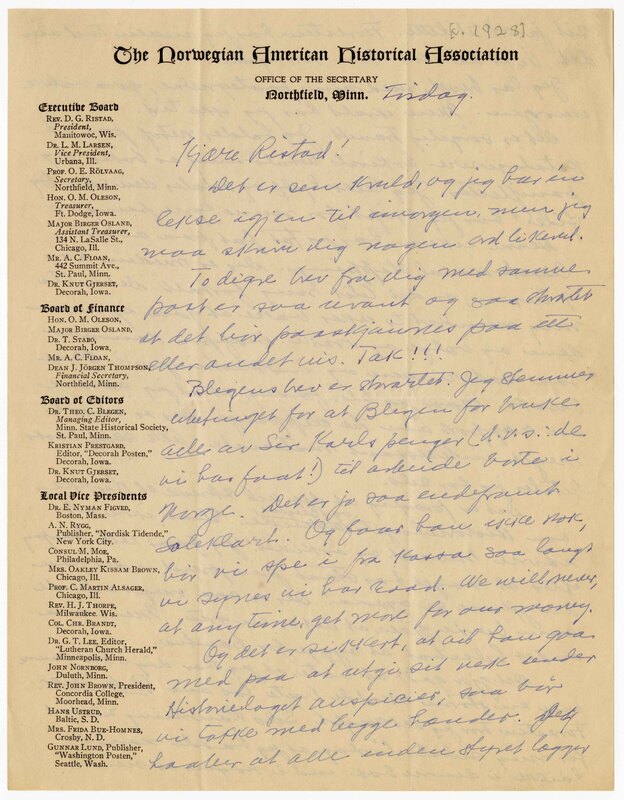 [c. 1928]
The Norwegian American Historical Association
OFFICE OF THE SECRETARY
Northfield, Minn.
Tirsdag.
Executive Board
REV. D. G. RISTAD,
President,
Manitowoc, Wis.
DR. L. M. LARSEN,
Vice President,
Urbana, Ill.
PROF. O. E. RÖLVAAG,
Secretary,
Northfield, Minn.
HON. O. M. OLESON,
Treasurer,
Ft. Dodge, Iowa.
MAJOR BIRGER OSLAND,
Assistant Treasurer,
134 N. LaSalle St.,
Chicago, Ill.
MR. A. C. FLOAN,
442 Summit Ave.,
St. Paul, Minn.
DR. KNUT GJERSET,
Decorah, Iowa.
Board of Finance
HON. O. M. OLESON,
MAJOR BIRGER OSLAND,
DR. T. STABO,
Decorah, Iowa.
MR. A. C. FLOAN,
DEAN J. JÖRGEN THOMPSON,
Financial Secretary,
Northfield, Minn.
Board of Editors
DR. THEO. C. BLEGEN,
Managing Editor,
Minn. State Historical Society,
St. Paul, Minn.
KRISTIAN PRESTGARD,
Editor, "Decorah Posten,"
Decorah, Iowa.
DR. KNUT GJERSET,
Decorah, Iowa.
Local Vice Presidents
DR. E. NYMAN FIGVED,
Boston, Mass.
A. N. RYGG,
Publisher, "Nordisk Tidende,"
New York City.
CONSUL M. MOE,
Philadelphia, Pa.
MRS. OAKLEY KISSAM BROWN,
Chicago, Ill.
PROF. C. MARTIN ALSAGER,
Chicago, Ill.
REV. H. J. THORPE,
Milwaukee. Wis.
COL. CHR. BRANDT,
Decorah, Iowa.
DR. G. T. LEE, Editor,
"Lutheran Church Herald,"
Minneapolis, Minn.
JOHN NORBORG,
Duluth, Minn.
REV. JOHN BROWN, President,
Concordia College,
Moorhead, Minn.
HANS USTRUD,
Baltic, S. D.
MRS. FRIDA BUE-HOMNES,
Crosby, N. D.
GUNNAR LUND, Publisher,
"Washington Posten,"
Seattle, Wash.
Kjære Ristad!
Det er sen kveld, og jeg har én
lekse igjen til imorgen, men jeg
maa skrive dig nogen ord likevel.
To digre brev fra dig med samme
post er saa uvant og saa
at det bør paaskjønnes paa ett
eller andet vis. Tak!!!
Blegens brev er Jeg stemmer
ubetinget for at Blegen faar bruke
alle av Sir Karls penger (d.v.s.: de
vi har faat!) til arbeide borte i
Norge. Det er jo saa endeframt
soleklart. Og faar han ikke nok,
bør vi spe i fra kassa saa langt
vi synes vi har raad. We will never,
at any time, get more for our money.
Og det er sikkert, at vil han gaa
med paa at utgi sit verk under
Historielaget auspicier, saa bør
vi takke med begge hænder. Jeg
haaber at alle inden styret lægger